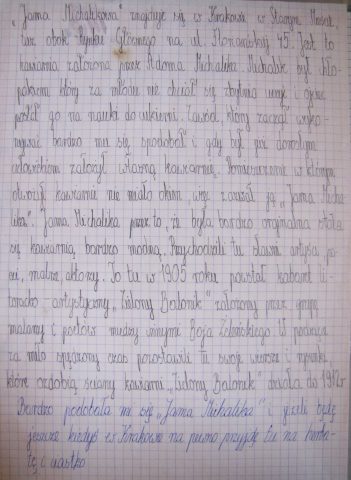 „Jama Michalikowa” znajduje się w Krakowie w Starym Mieście,
tuż obok Rynku Głównego na ul. Floriańskiej 45. Jest to
kawiarnia założona przez Adama Michalika. Michalik był chło-
pakiem który za młodu nie chciał się zbytnio uczyć i ojciec
posłał go na nauki do cukierni. Zawód, który zaczął wyko-
nywać bardzo mu się spodobał i gdy był już dorosłym
człowiekiem założył własną kawiarnię. Pomieszczenie w którym
otworzył kawiarnie nie miało okien, więc nazwał ją „Jama Micha
lika”. Jama Michalika przez to, że była bardzo orginalna stała
się kawiarnią bardzo modną. Przychodzili tu sławni artyści, po-
eci, malarze, aktorzy. To tu w 1905 roku powstał kabaret li-
teracko - artystyczny „Zielony Balonik” założony przez grupę
malarzy i poetów między innymi Boja Żeleńskiego. W podzięce
za miło spędzony czas pozostawili tu swoje wiersze i rysunki,
które ozdobią ściany kawiarni. „Zielony Balonik” działał do 1912r
Bardzo podobała mi się „Jama Michalika” i jeżeli będę
jeszcze kiedyś w Krakowie na pewno przyjdę tu na herba-
tę i ciastko